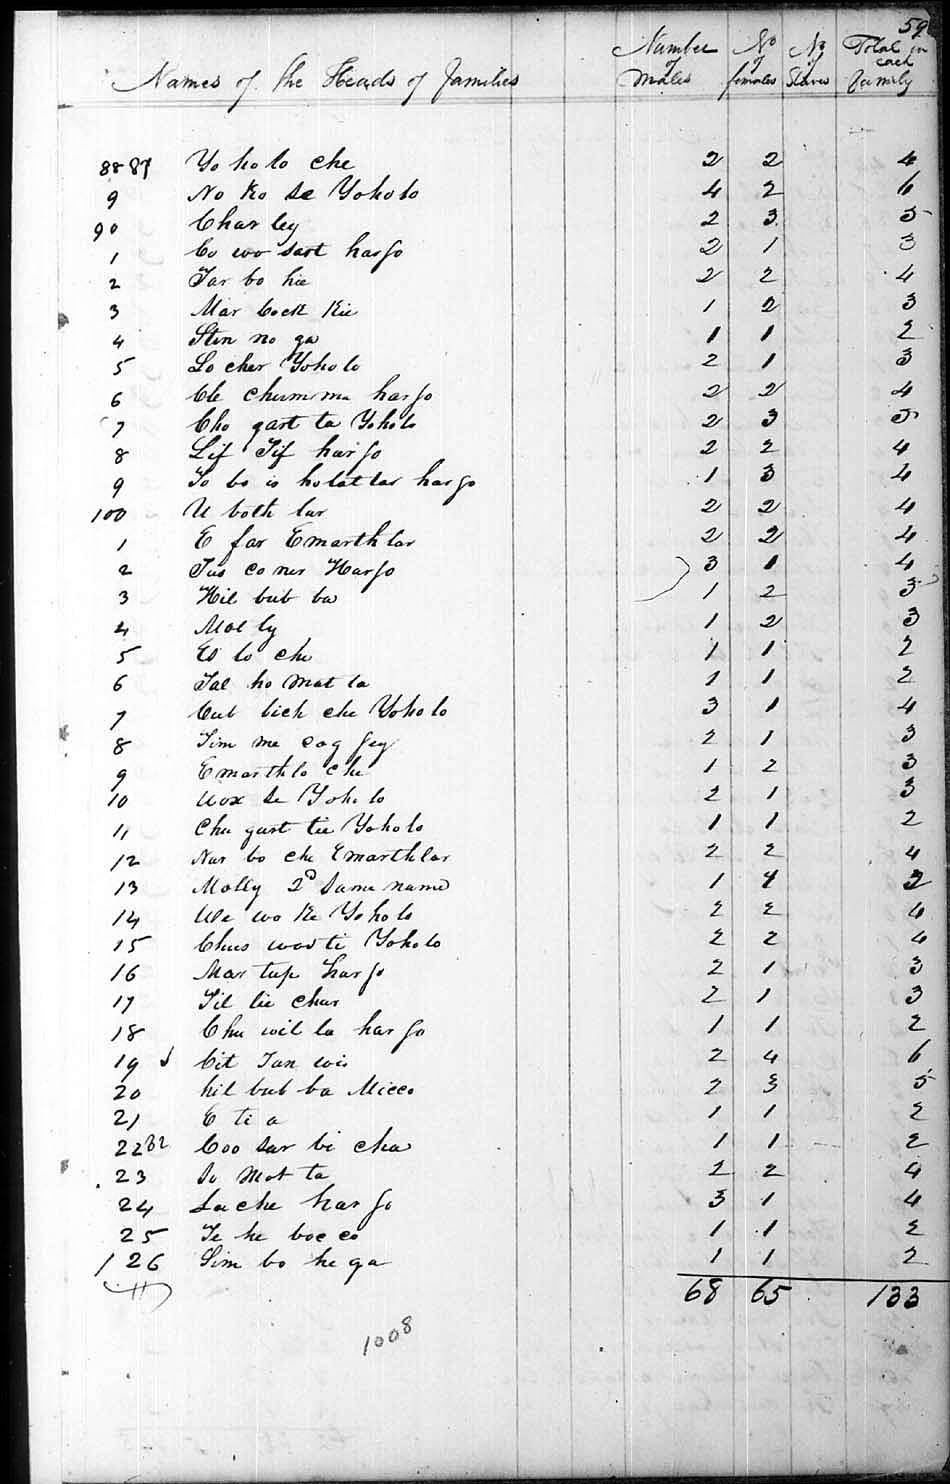 59
Names of the Heads of Families Number of Males No of females No of Slaves Total in each family
88 Yo ho lo che 2 2 4
9 No Ko se Yoholo 4 2 6
90 Charley 2 3 5
1 Co wo sart harjo 2 1 3
2 Tar bo hie 2 2 4
3 Mar Cock Kie 1 2 3
4 Sten no ga 1 1 2
5 Lo cher Yoholo 2 1 3
6 Cle chum ma harjo 2 2 4
7 Cho gart ta Yoholo 2 3 5
8 Lif Tif harjo 2 2 4
9 To bo is holattar harjo 1 3 4
100 U both lar 2 2 4
1 E far Emarthlar 2 2 4
2 Tus co ner Harjo 3 1 4
3 Hil bub ba 1 2 3
4 Molly 1 2 3
5 Es lo che 1 1 2
6 Tal ho mat ta 1 1 2
7 Cub bich che Yoholo 3 1 4
8 Tim me cog gey 2 1 3
9 Emarthlo che 1 2 3
10 Wox se Yoholo 2 1 3
11 Chu gart tie Yoholo 1 1 2
12 Nar bo che Emarthlar 2 2 4
13 Molly 2d Same name 1
14 We wo Ke Yoholo 2 2 4
15 Chus wos ti Yoholo 2 2 4
16 Mar tup harjo 2 1 3
17 Til lie char 2 1 3
18 Chu wil la harjo 1 1 2
19 Cit Tan wis 2 4 6
20 hil bub ba Micco 2 3 5
21 E ti a 1 1 2
22 Coo sar bi cha 1 1 2
23 So Mot ta 2 2 4
24 La che harjo 3 1 4
25 Te he boc co 1 1 2
126 Sim bo he ga 1 1 2
68 65 133
1008